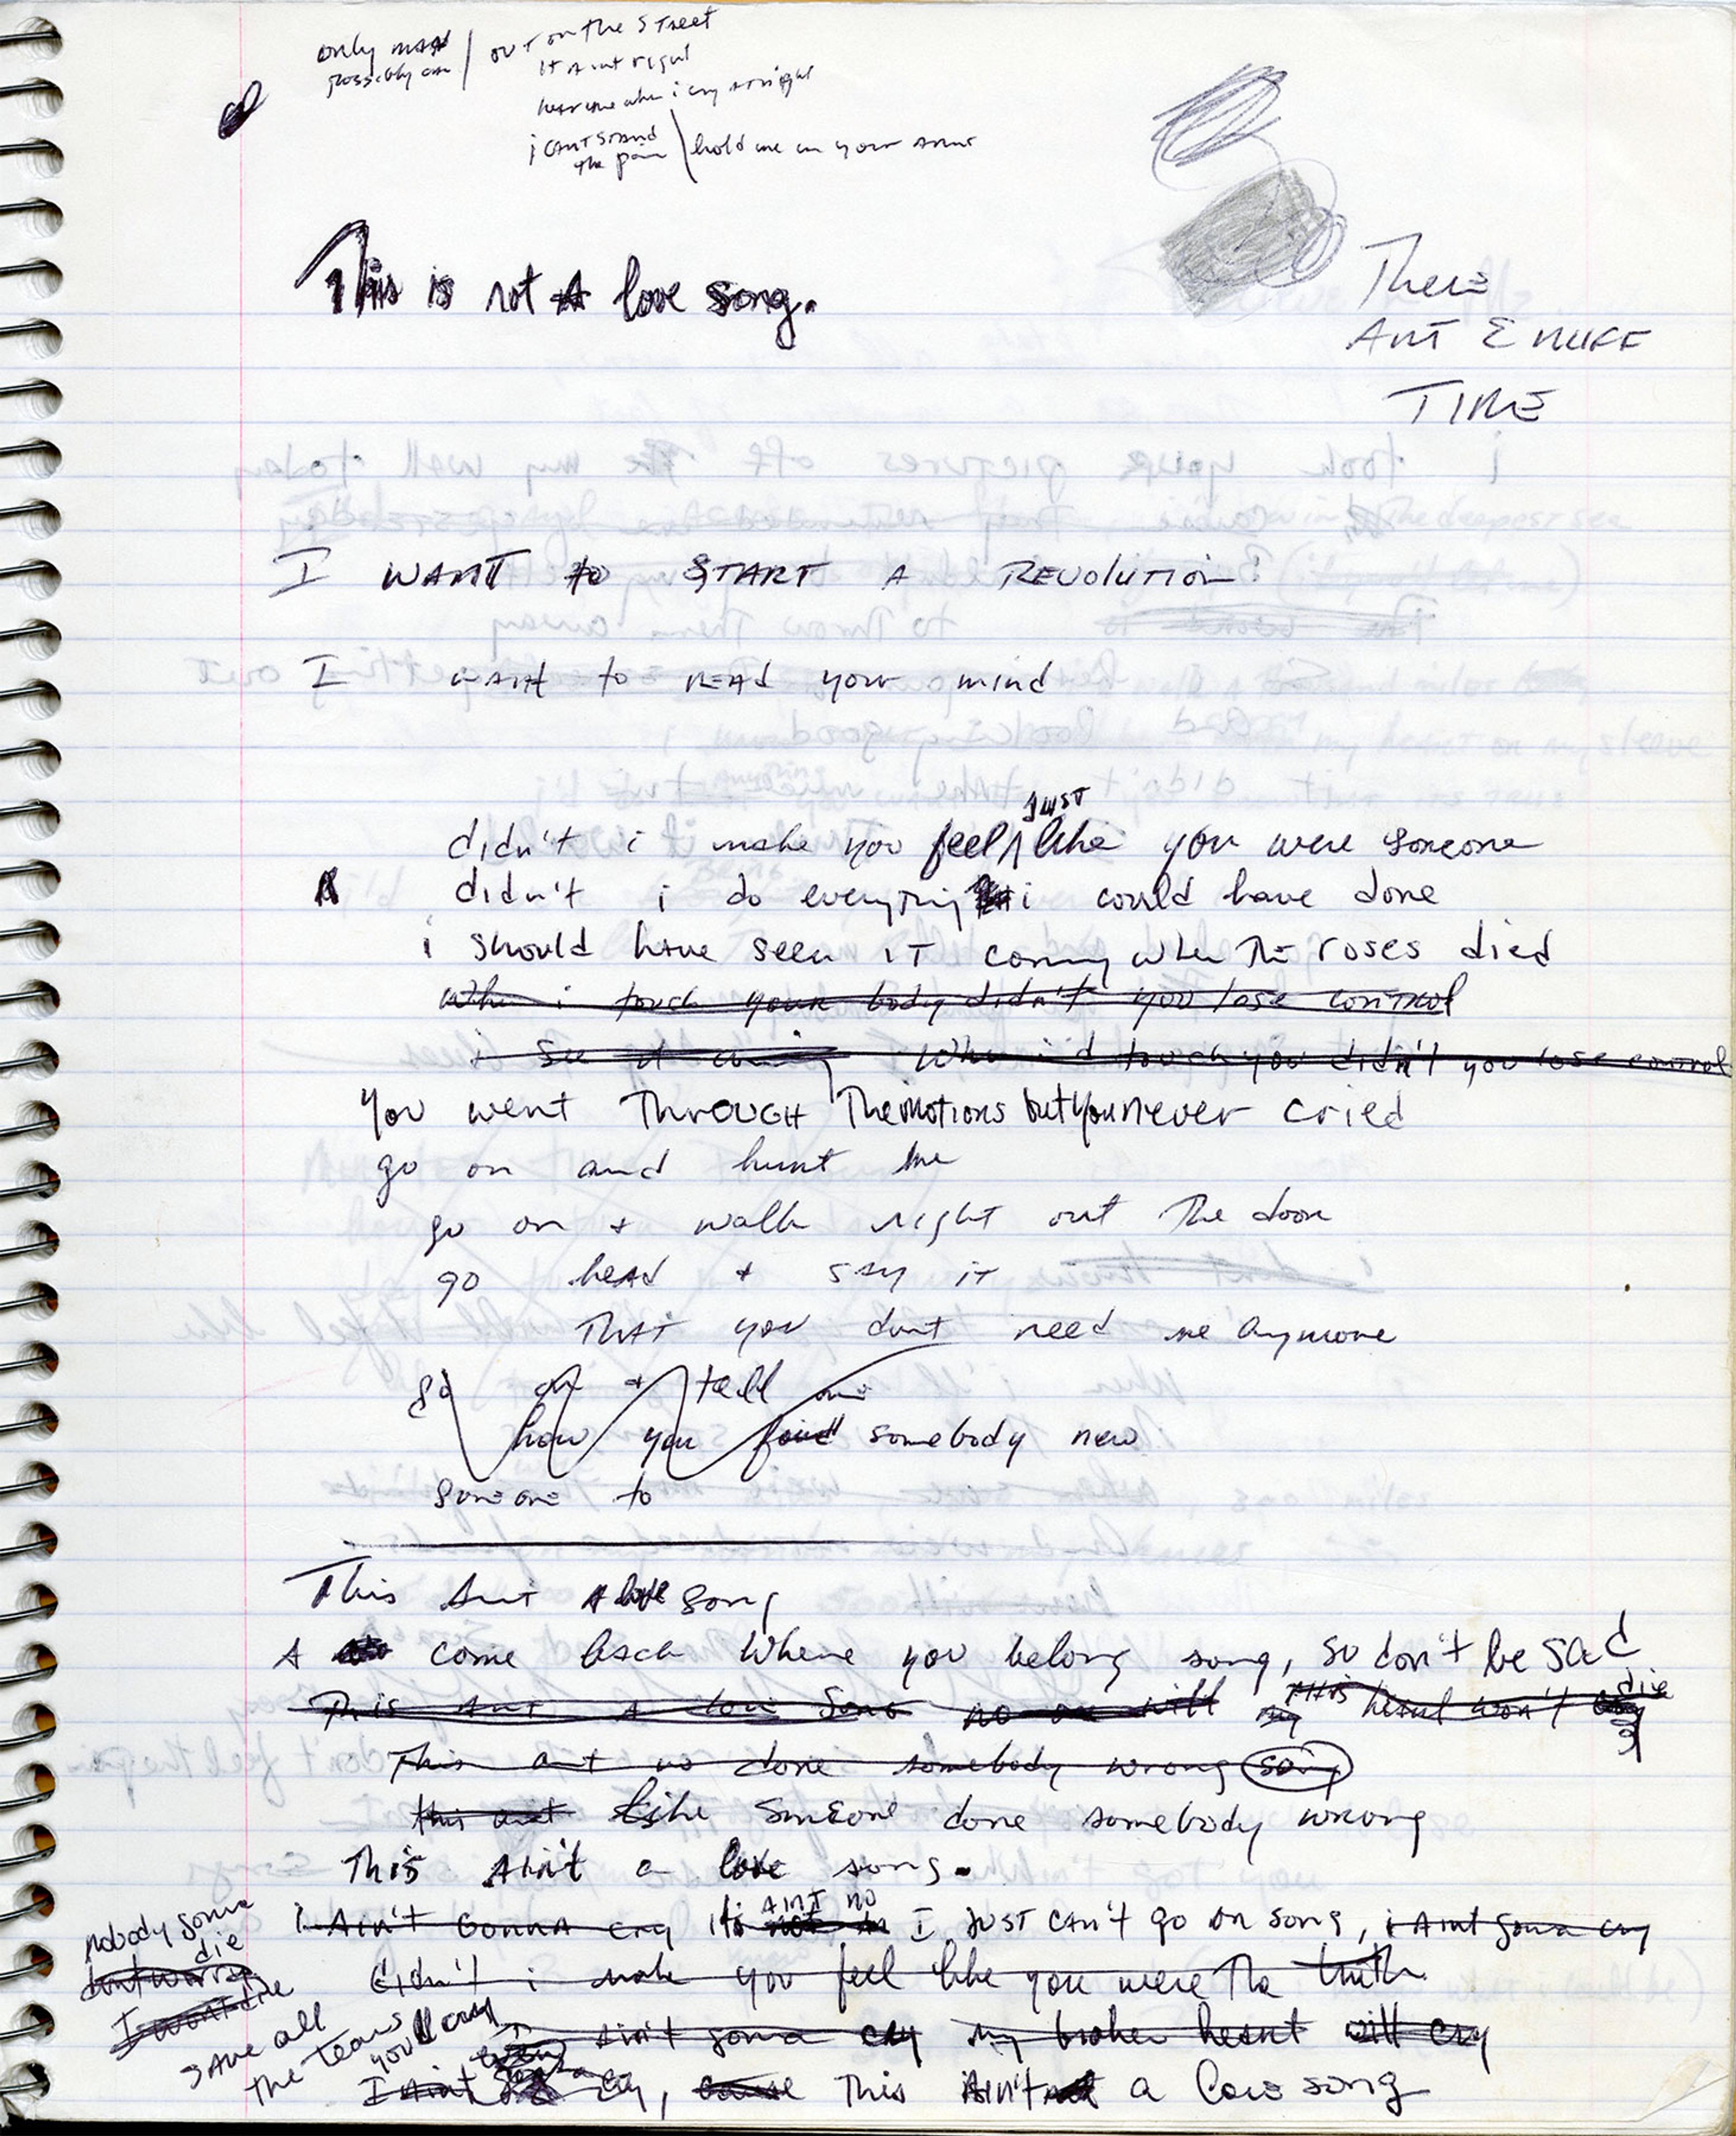 only man / out on the street
possibly can
it aint right
hear me when i cry at night
i can't stand \ hold me in your arms
the pain
This is not A love song.
There
AinT ENUFF
TIME
I WANT to START A REVOLUTION
I want to read your mind
JUST
didn't i make you feel like you were someone
didn't i do everything i could have done
i should have seen iT coming when The roses died
When i touch your body didn't you lose control
i see it coming When i'd touch you didn't you lose control
You went THROUGH The motions but you never cried
go on and hurt me
go on + walk right out The door
go head + say it
THAT you don't need me anymore
go on + tell me
how you found somebody new
someone to
This Ain't A love song
A come back where you belong song, so don't be sad
This Ain't A love song no one will my THIS heart won't die
This ain't no done somebody wrong song
this aint Like Someone done somebody wrong
This Ain't a love song.
AINT NO
i Ain't Gonna cry its I JUST CAN'T go on song, i Aint gonna cry
nobody gonna
die
dont worry
I wont die
didn't i make you feel like you were The truth
Ain't gonna cry my broken heart will cry
SAVE all
the tears
you'll cry
I Aint cry, cause This AIN'T a love song